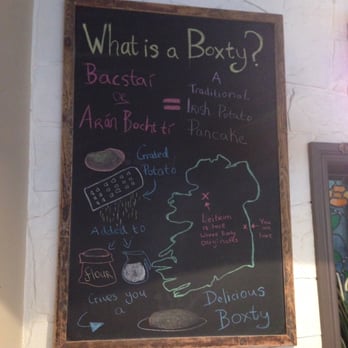 What is a Boxty?
Bacstaí
or
Arán Bocht tí
=
A
Traditional
Irish Potato
Pancake
Grated
Potato
Added to
FLOUR
Gives you
a
x
Leitrim
is here
where Boxty
originates
x
You
are
here
Delicious
Boxty